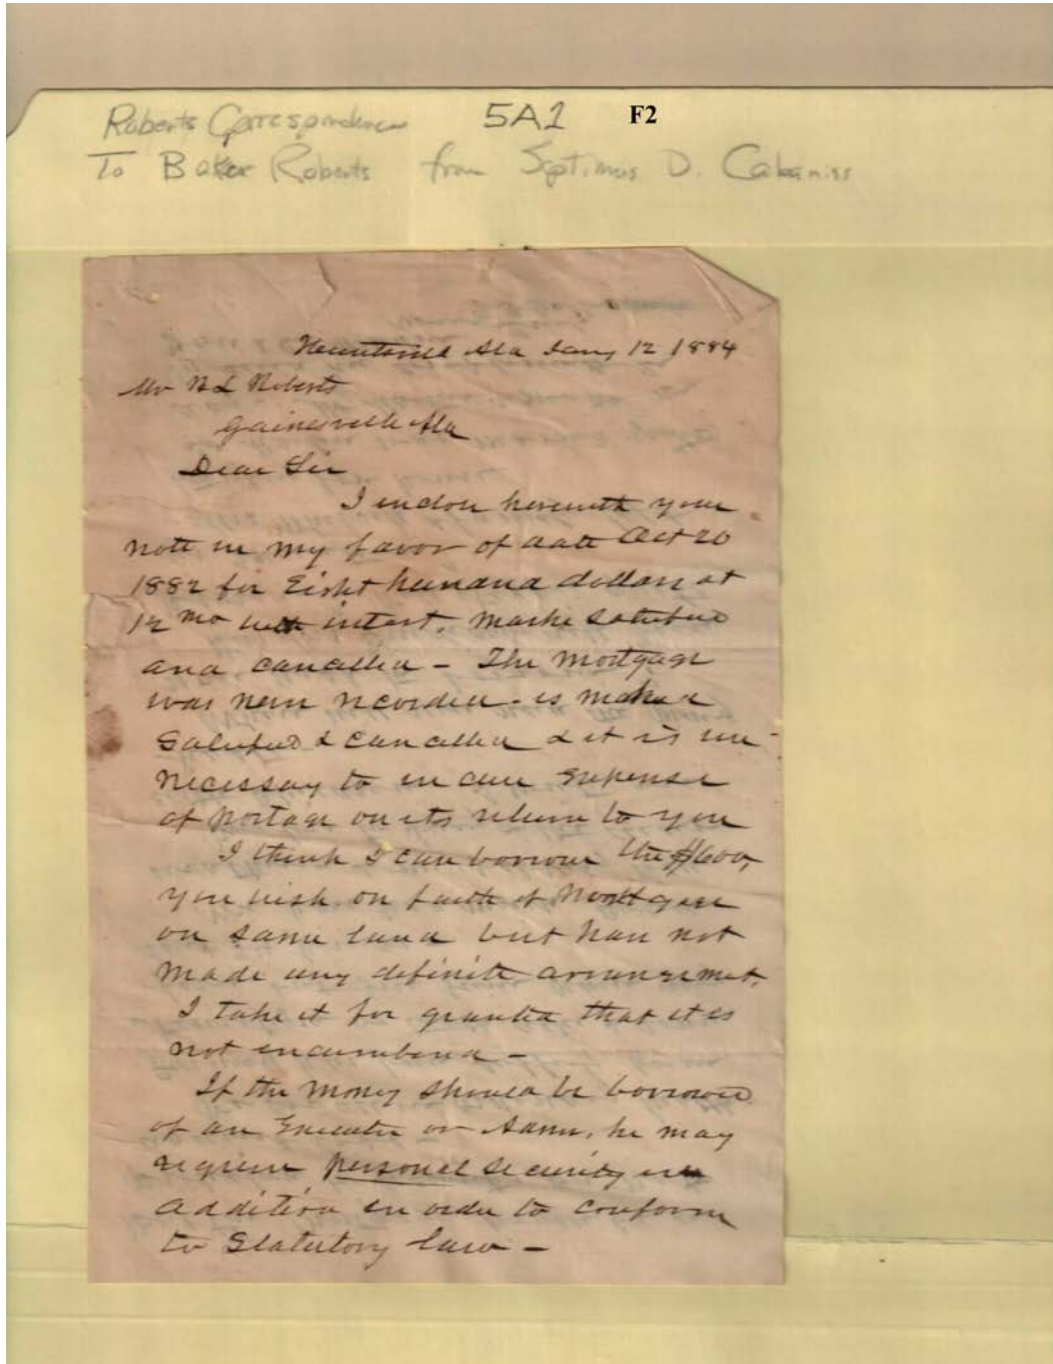 Roberts Correspondence 5A1 F2
To Baker Roberts from Septimus D. Cabaniss
Huntsville Ala Jany 12 1884
Mr B L Roberts
Gainesville Ala
Dear Sir
I enclose herewith your
note in my favor of date Oct 20
1882 for Eight hundred dollars at
12 mo with interst. marked satisfied
and cancelled - The mortgage
was never recorded - is marked
Satisfied & cancelled & it is un-
necessary to incur expense
of postage on its return to you
I think I can borrow the $600,
you wish on faith of Mortgage
on same land but have not
made any definite arrangemet.
I take it for granted that it is
not encumbered -
If the money should be borrowed
of an Executor or Admr, he may
require personal security in
addition in order to conform
to Statutory law -